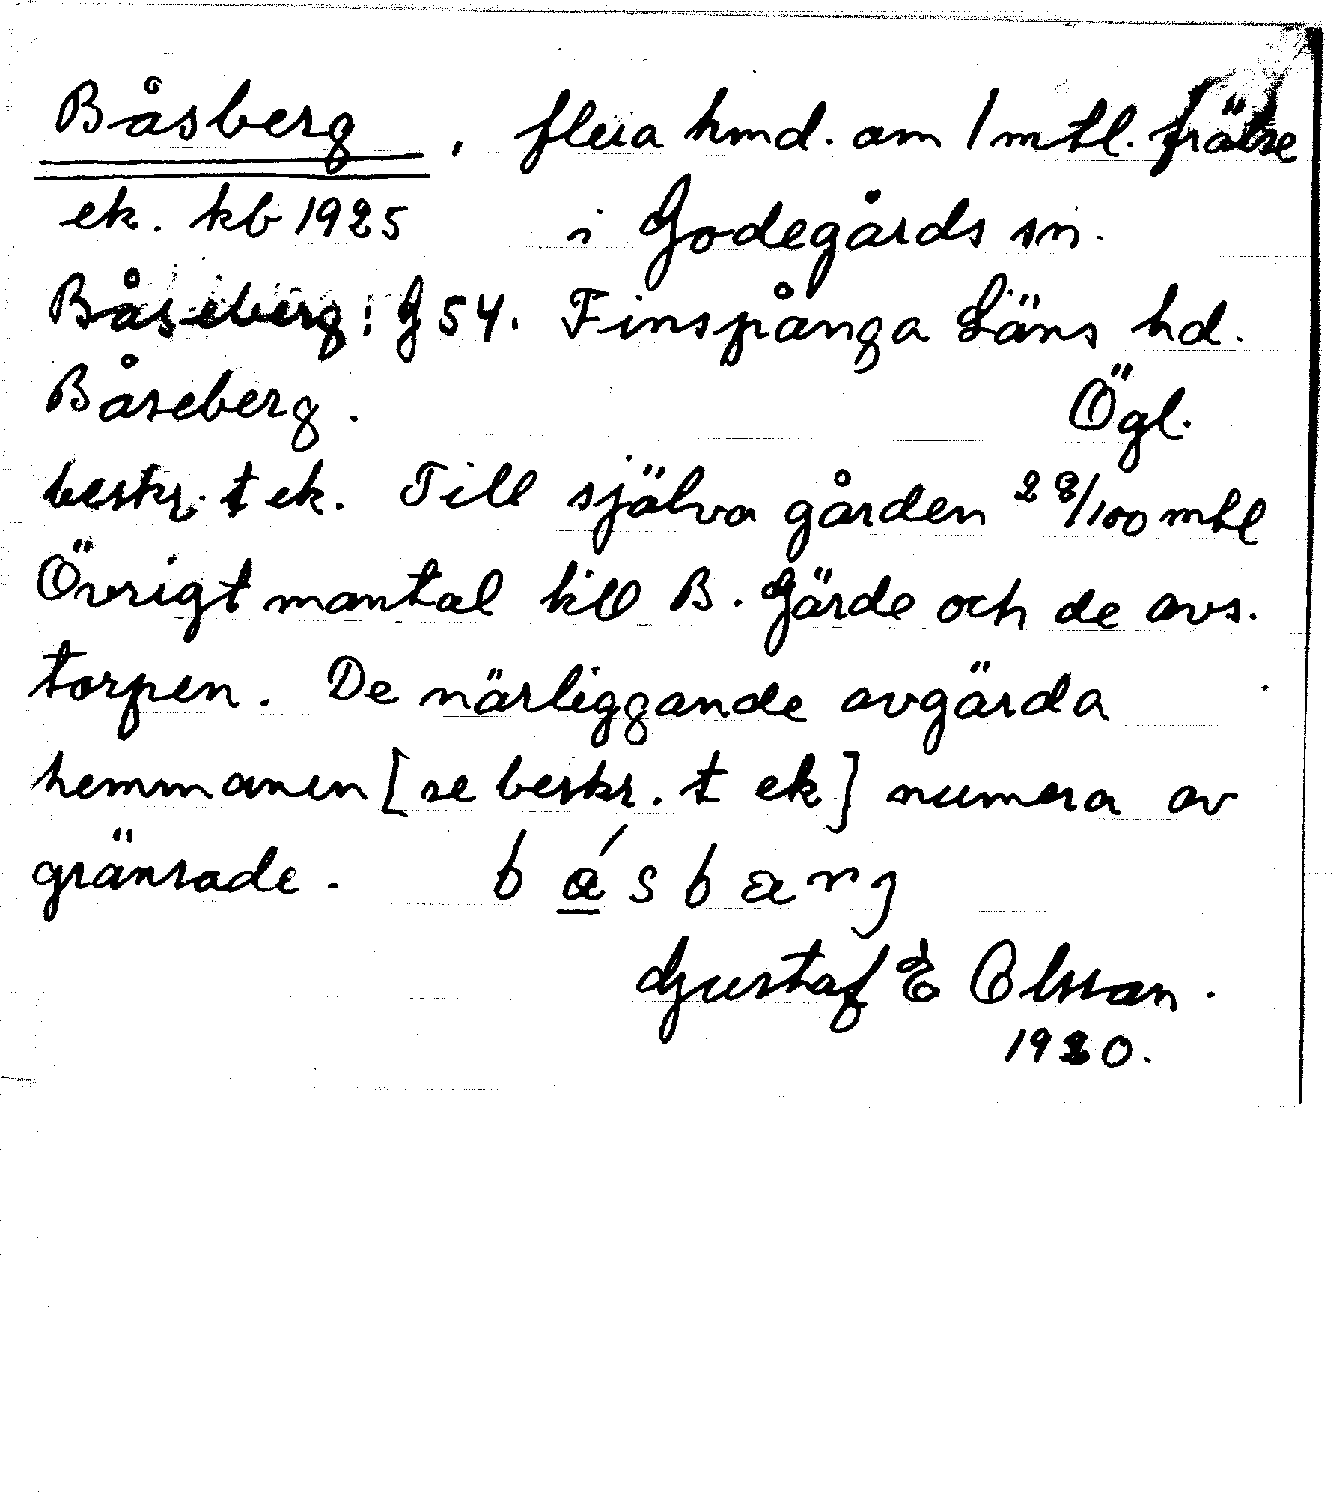 Båsberg, flera hmd. om 1 mtl. frälse
ek. kb 1925 i Godegårds sn.
Båseberg: G 54. Finspånga Läns hd.
Båseberg. Ögl.
beskr. t ek. Till själva gården 28/100 mtl
Övrigt mantal till B. Gärde och de avs.
torpen. De närliggande avgärda
hemmanen [se beskr. t ek] numera av
gränsade. båsbarj
Gustaf E Olsson.